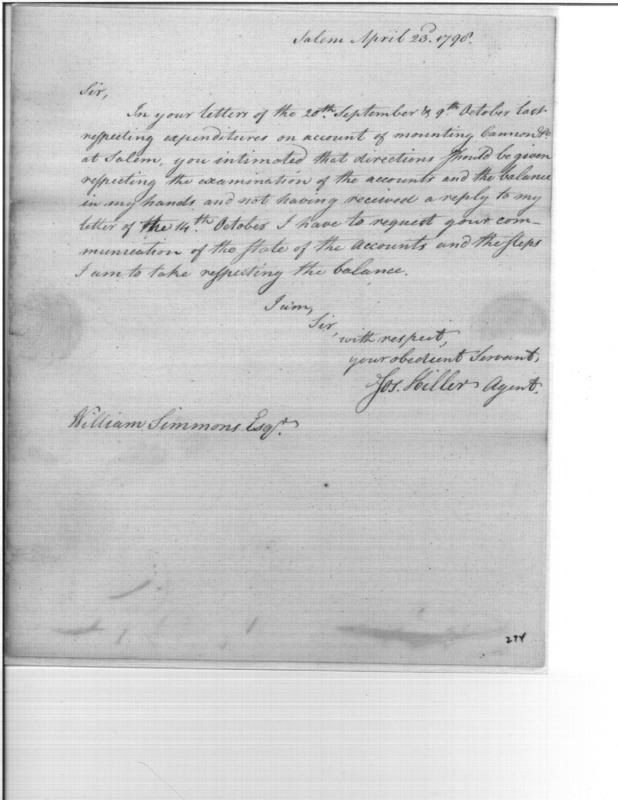 Salem April 23d. 1798.
Sir,
In your letters of the 20th. September & 9th October last
respecting expenditures on account of mounting Cannon &c
at Salem, you intimated that directions should be given
respecting the examination of the accounts and the balance
in my hands and not having received a reply to my
letter of the 14th. October I have to request your com-
munication of the state of the accounts and the steps
I am to take respecting the balance.
I am,
Sir,
with respect,
your obedient Servant,
Jos. Hiller Agent.
William Simmons Esqr.
274